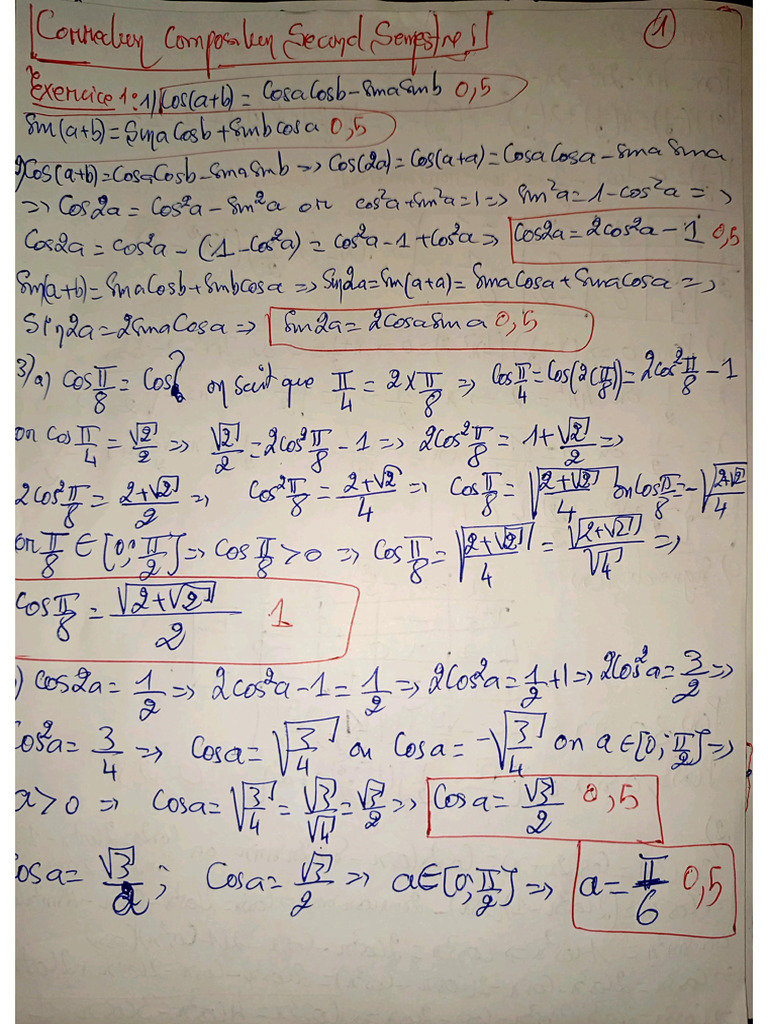 Correction Composition Second Semestre 1
1
Exercice 1: 1) Cos(a+b) = cosa cosb - sina sinb 0,5
Sin(a+b) = Sina Cosb + sinb cosa 0,5
2) Cos(a+b) = Cosa Cosb - sina sinb => Cos(2a) = Cos(a+a) = Cosa Cosa - sina sina
=> Cos2a = Cos²a - Sin²a or cos²a + sin²a = 1 => Sin²a = 1 - cos²a =>
Cos2a = cos²a - (1 - cos²a) = cos²a - 1 + cos²a => Cos2a = 2cos²a - 1 0,5
Sin(a+b) = Sina Cosb + Sinb cosa => Sin2a = Sin(a+a) = Sina Cosa + Sina cosa =>
Sin2a = 2sina Cosa => Sin2a = 2cosa sina 0,5
3) a) cos π/8 = Cos? on sait que π/4 = 2 × π/8 => Cos π/4 = Cos(2(π/8)) = 2cos² π/8 - 1
or cos π/4 = √2/2 => √2/2 = 2cos² π/8 - 1 => 2cos² π/8 = 1 + √2/2 =>
2cos² π/8 = (2+√2)/2 => Cos² π/8 = (2+√2)/4 => Cos π/8 = √((2+√2)/4) ou Cos π/8 = -√((2+√2)/4)
or π/8 ∈ [0; π/2] => Cos π/8 > 0 => Cos π/8 = √((2+√2)/4) = √(2+√2)/√4 =>
cos π/8 = √(2+√2)/2 1
) Cos2a = 1/2 => 2cos²a - 1 = 1/2 => 2Cos²a = 1/2 + 1 => 2Cos²a = 3/2 =>
Cos²a = 3/4 => Cosa = √(3/4) ou Cosa = -√(3/4) or a ∈ [0; π/2] =>
a > 0 => Cosa = √(3/4) = √3/√4 = √3/2 => Cosa = √3/2 0,5
Cosa = √3/2 ; Cosa = √3/2 => a ∈ [0; π/2] => a = π/6 0,5